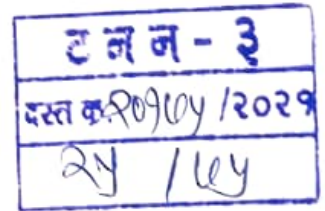 ट न न - ३
दस्त क्र. २०१७५ /२०२१
२५ /७५